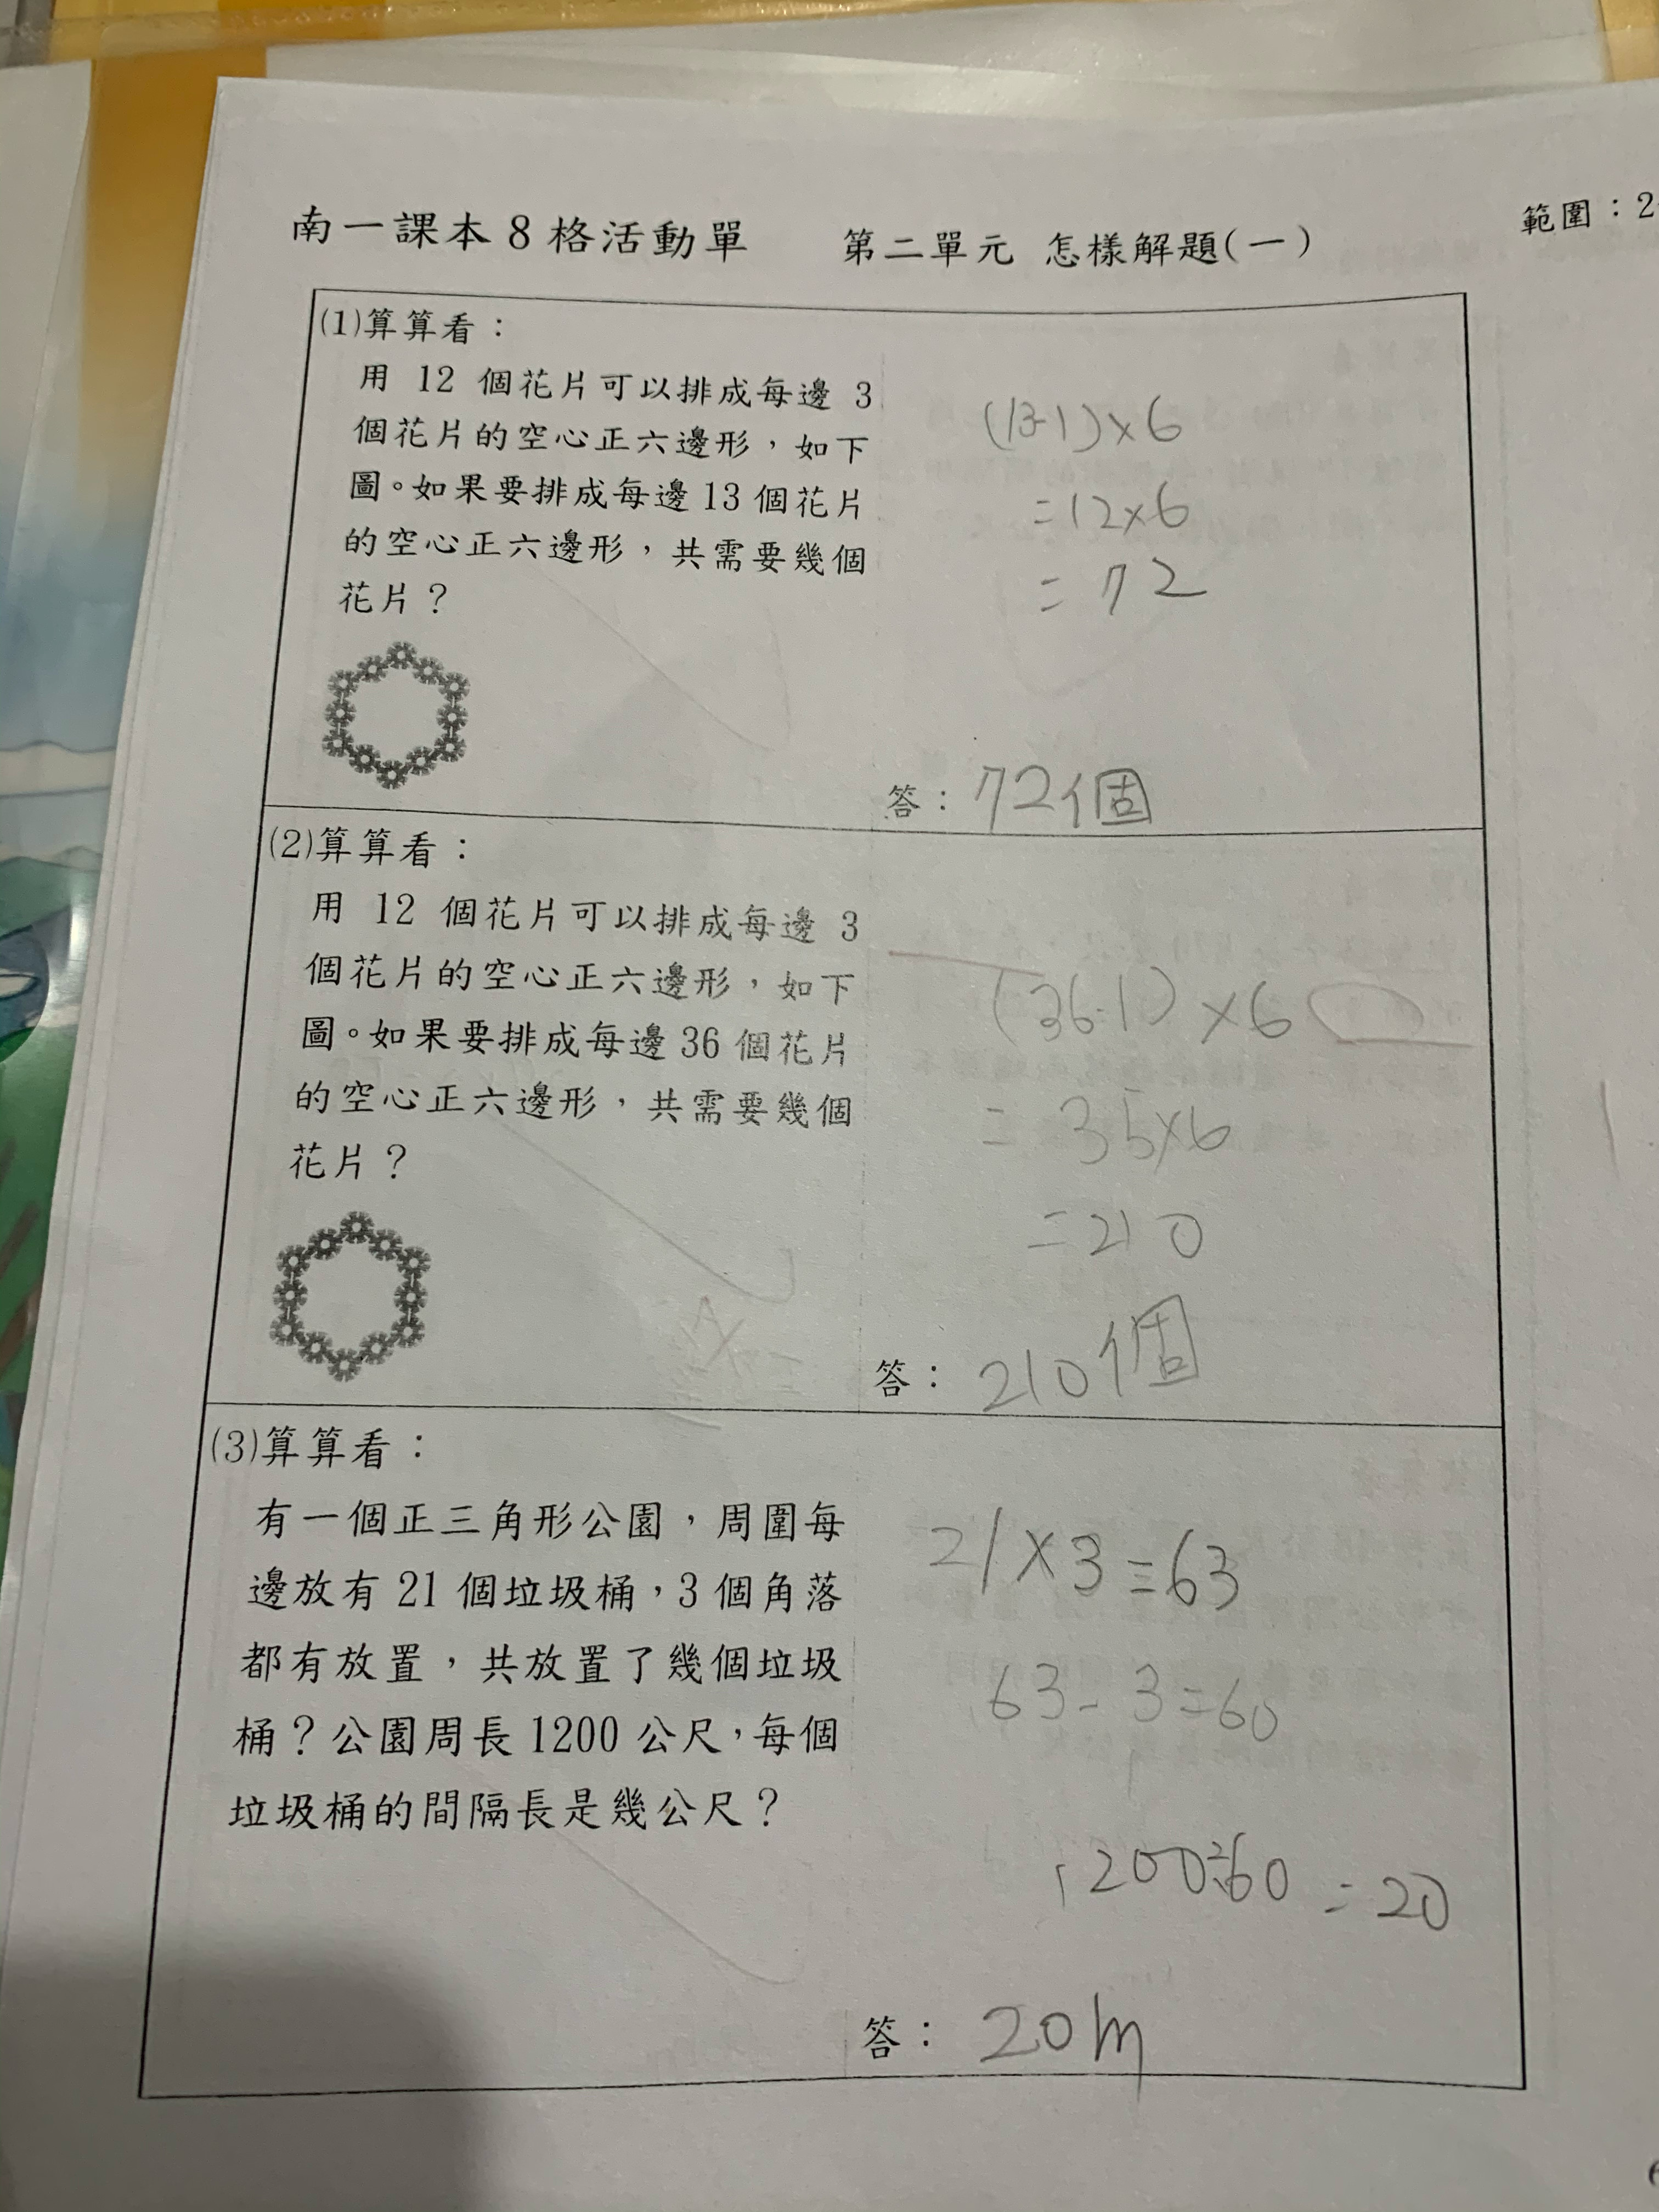 南一課本8格活動單 第二單元 怎樣解題(一) 範圍：2
(1)算算看：
用 12 個花片可以排成每邊 3
個花片的空心正六邊形，如下
圖。如果要排成每邊13個花片
的空心正六邊形，共需要幾個
花片？
(13-1)×6
=12×6
=72
答：72個
(2)算算看：
用 12 個花片可以排成每邊 3
個花片的空心正六邊形，如下
圖。如果要排成每邊36個花片
的空心正六邊形，共需要幾個
花片？
(36-1)×6
= 35×6
=210
答：210個
(3)算算看：
有一個正三角形公園，周圍每
邊放有21個垃圾桶，3個角落
都有放置，共放置了幾個垃圾
桶？公園周長1200公尺，每個
垃圾桶的間隔長是幾公尺？
21×3=63
63-3=60
1200÷60=20
答：20m